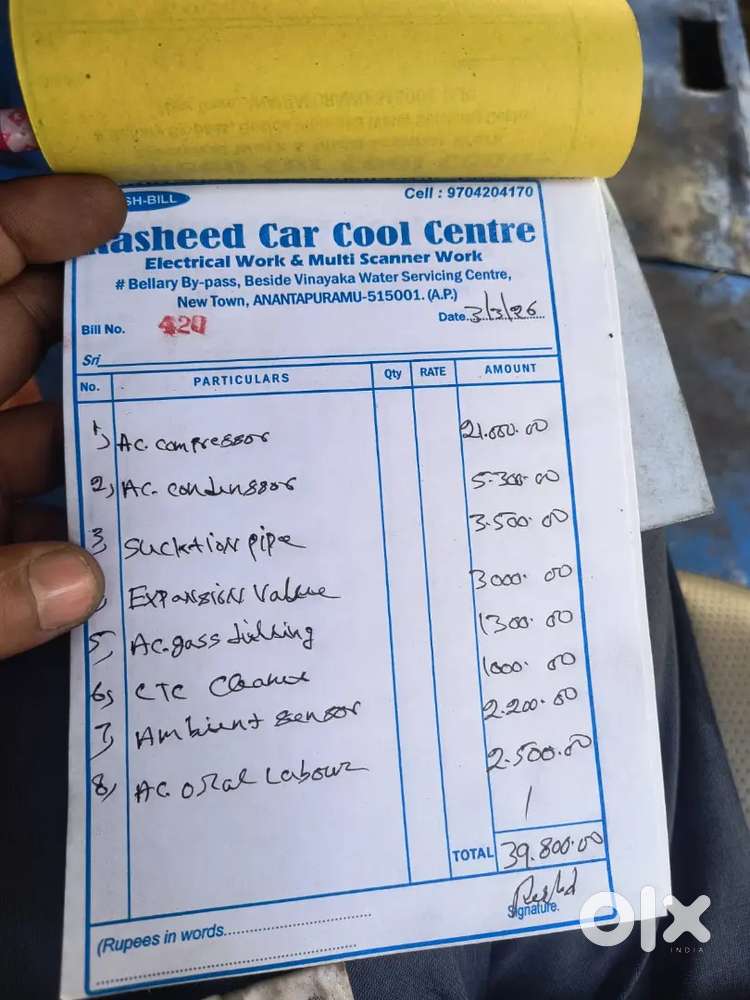 SH-BILL
Cell : 9704204170
Rasheed Car Cool Centre
Electrical Work & Multi Scanner Work
# Bellary By-pass, Beside Vinayaka Water Servicing Centre,
New Town, ANANTAPURAMU-515001. (A.P.)
Bill No. 420 Date. 3/3/26
Sri
No. PARTICULARS Qty RATE AMOUNT
1) AC. compressor 21.000.00
2) AC. condenssor 5.300.00
3) Sucktion pipe 3.500.00
Expansion Value 3000.00
5) AC. gass filling 1300.00
6) CTC Cleaner 1000.00
7) Ambient sensor 2.200.00
8) AC. Labour 2.500.00
TOTAL 39.800.00
Signature.
(Rupees in words
olx
INDIA